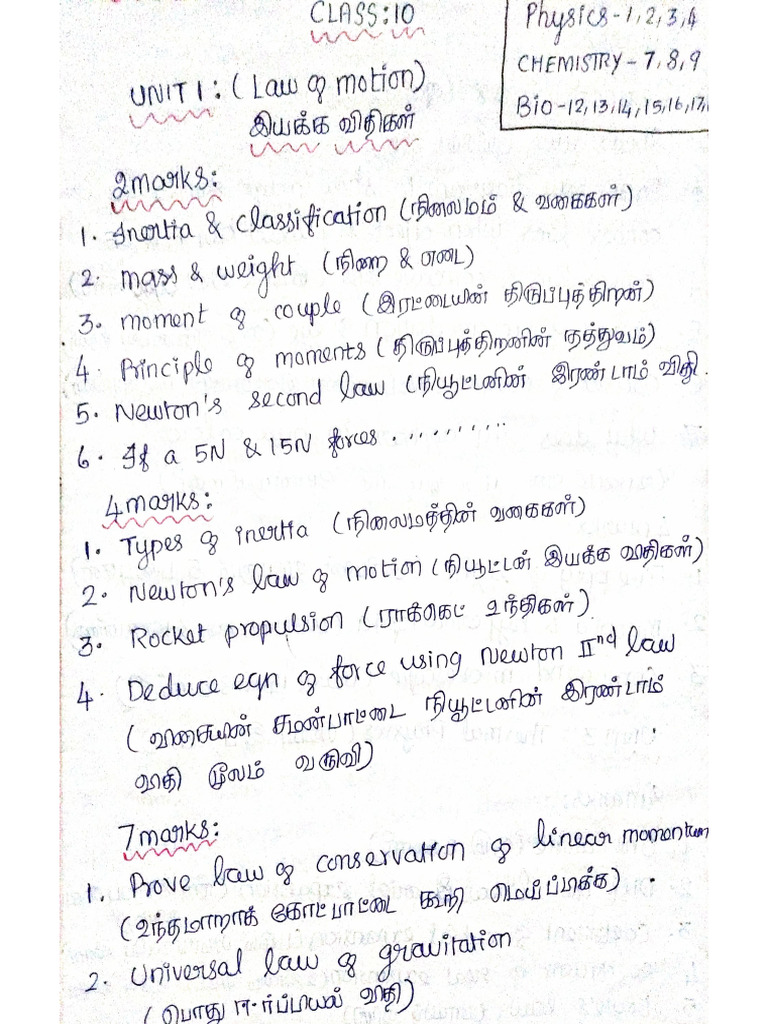 CLASS:10
Physics-1,2,3,4
CHEMISTRY-7,8,9
Bio-12,13,14,15,16,17,
UNIT 1: (Law of motion)
இயக்க விதிகள்
2marks:
1. Inertia & classification (நிலைமம் & வகைகள்)
2. mass & weight (நிறை & எடை)
3. moment of couple (இரட்டையின் திருப்புத்திறன்)
4. Principle of moments (திருப்புத்திறனின் தத்துவம்)
5. Newton's second law (நியூட்டனின் இரண்டாம் விதி.
6. If a 5N & 15N forces ..........
4marks:
1. Types of inertia (நிலைமத்தின் வகைகள்)
2. Newton's law of motion (நியூட்டன் இயக்க விதிகள்)
3. Rocket propulsion (ராக்கெட் உந்திகள்)
4. Deduce eqn of force using Newton IInd law
(விசையின் சமன்பாட்டை நியூட்டனின் இரண்டாம்
விதி மூலம் வருவி)
7marks:
1. Prove law of conservation of linear momentum
(உந்தமாறாக் கோட்பாட்டை கூறி மெய்ப்பிக்க).
2. Universal law of gravitation
(பொது ஈர்ப்பியல் விதி)